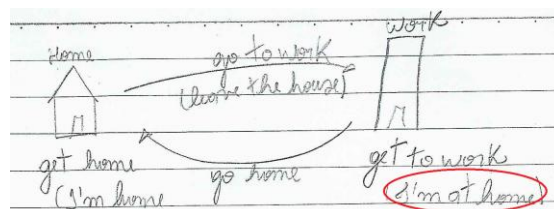 work
Home
go to work
(leave the house)
get home
(I'm home
go home
get to work
(I'm at home)